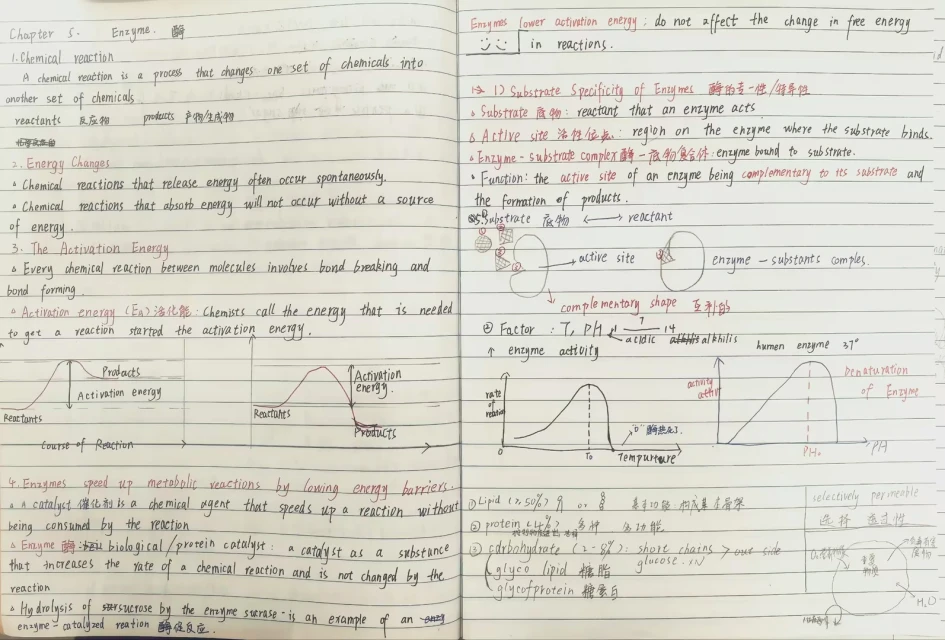 Chapter 5. Enzyme. 酶
1. Chemical reaction
A chemical reaction is a process that changes one set of chemicals into
another set of chemicals
reactants 反应物 products 产物/生成物
2. Energy Changes
Chemical reactions that release energy often occur spontaneously.
Chemical reactions that absorb energy will not occur without a source
of energy.
3. The Activation Energy
Every chemical reaction between molecules involves bond breaking and
bond forming.
Activation energy (Ea) 活化能: Chemists call the energy that is needed
to get a reaction started the activation energy.
Products
Activation energy
Reactants
Course of Reaction
Activation
energy.
Reactants
Products
4. Enzymes speed up metabolic reactions by lowing energy barriers.
A catalyst 催化剂 is a chemical agent that speeds up a reaction without
being consumed by the reaction
Enzyme 酶: biological/protein catalyst: a catalyst as a substance
that increases the rate of a chemical reaction and is not changed by the
reaction
Hydrolysis of sucrose by the enzyme sucrase is an example of an
enzyme-catalyzed reation 酶促反应.
Enzymes lower activation energy: do not affect the change in free energy
in reactions.
1) Substrate Specificity of Enzymes 酶的专一性/特异性
Substrate 底物: reactant that an enzyme acts
Active site 活性位点: region on the enzyme where the substrate binds.
Enzyme-substrate complex 酶-底物复合体: enzyme bound to substrate.
Function: the active site of an enzyme being complementary to its substrate and
the formation of products.
Substrate 底物 ⟷ reactant
active site
enzyme-substants comples.
complementary shape 互补的
② Factor: T, PH
7 14
acidic alkhilis
enzyme activity
rate
of
reation
0
T₀
Tempurture
human enzyme 37°
activity
denaturation
of Enzyme
PH₀
PH
① Lipid (≥50%) or 基本功能 构成基本骨架
② protein (4%) 多种 多功能
③ cdrbohydrate (2-8%): short chains > out side
glucose. xN
glyco lipid 糖脂
glycofprotein 糖蛋白
selectively permeable
选择 透过性
H₂O